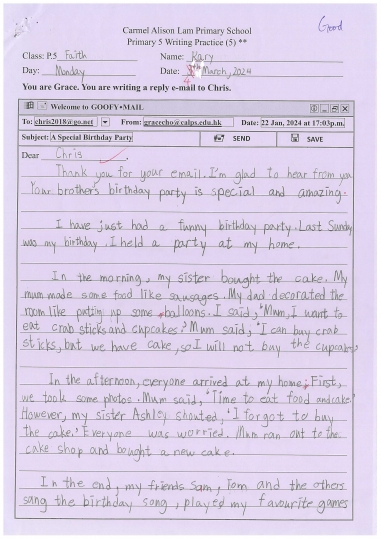 Good
Carmel Alison Lam Primary School
Primary 5 Writing Practice (5) **
Class: P.5 Faith Name: Kary
Day: Monday Date: March, 2024
You are Grace. You are writing a reply e-mail to Chris.
Welcome to GOOFY•MAIL
To: chris2018@go.net From: gracecho@calps.edu.hk Date: 22 Jan, 2024 at 17:03p.m.
Subject: A Special Birthday Party SEND SAVE
Dear Chris
Thank you for your email. I'm glad to hear from you
Your brother's birthday party is special and amazing.
I have just had a funny birthday party. Last Sunday
was my birthday. I held a party at my home.
In the morning, my sister bought the cake. My
mum made some food like sausages. My dad decorated the
room like putting up some balloons. I said, 'Mum, I want to
eat crab sticks and chpcakes?' Mum said, 'I can buy crab
sticks, but we have cake, so I will not buy the cupcakes'
In the afternoon, everyone arrived at my home. First,
we took some photos. Mum said, 'Time to eat food and cake!'
However, my sister Ashley shouted, 'I forgot to buy
the cake.' Everyone was worried. Mum ran out to the
cake shop and bought a new cake.
In the end, my friends Sam, Tom and the others
sang the birthday song, played my favourite games